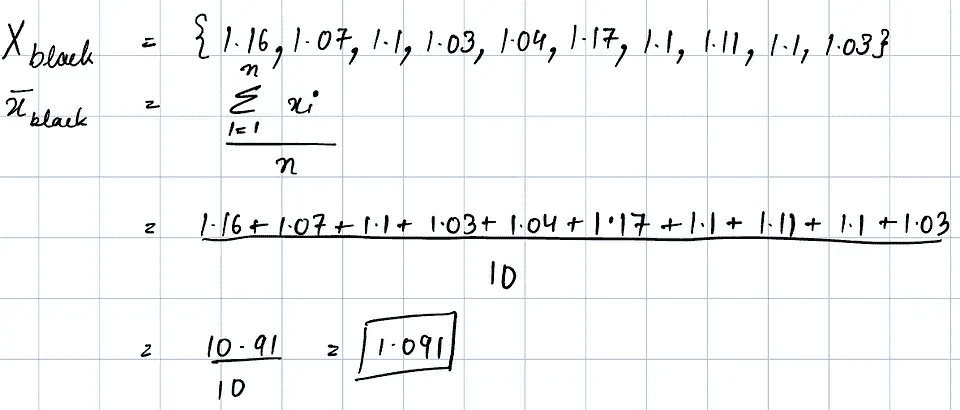 X black = { 1.16, 1.07, 1.1, 1.03, 1.04, 1.17, 1.1, 1.11, 1.1, 1.03}
x̄ black = n ∑ i=1 xi / n
= 1.16 + 1.07 + 1.1 + 1.03 + 1.04 + 1.17 + 1.1 + 1.11 + 1.1 + 1.03 / 10
= 10.91 / 10 = 1.091